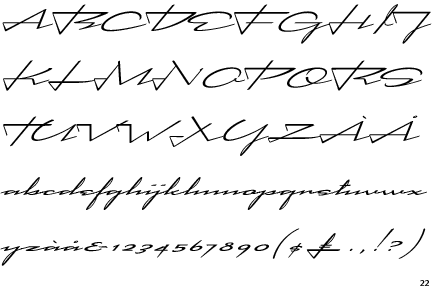 ABCDEFGHIJ
KLMNOPQRS
TUVWXYZÀÅ
abcdefghijklmnopqrstuvwx
yzàå&1234567890($£.,!?)
22